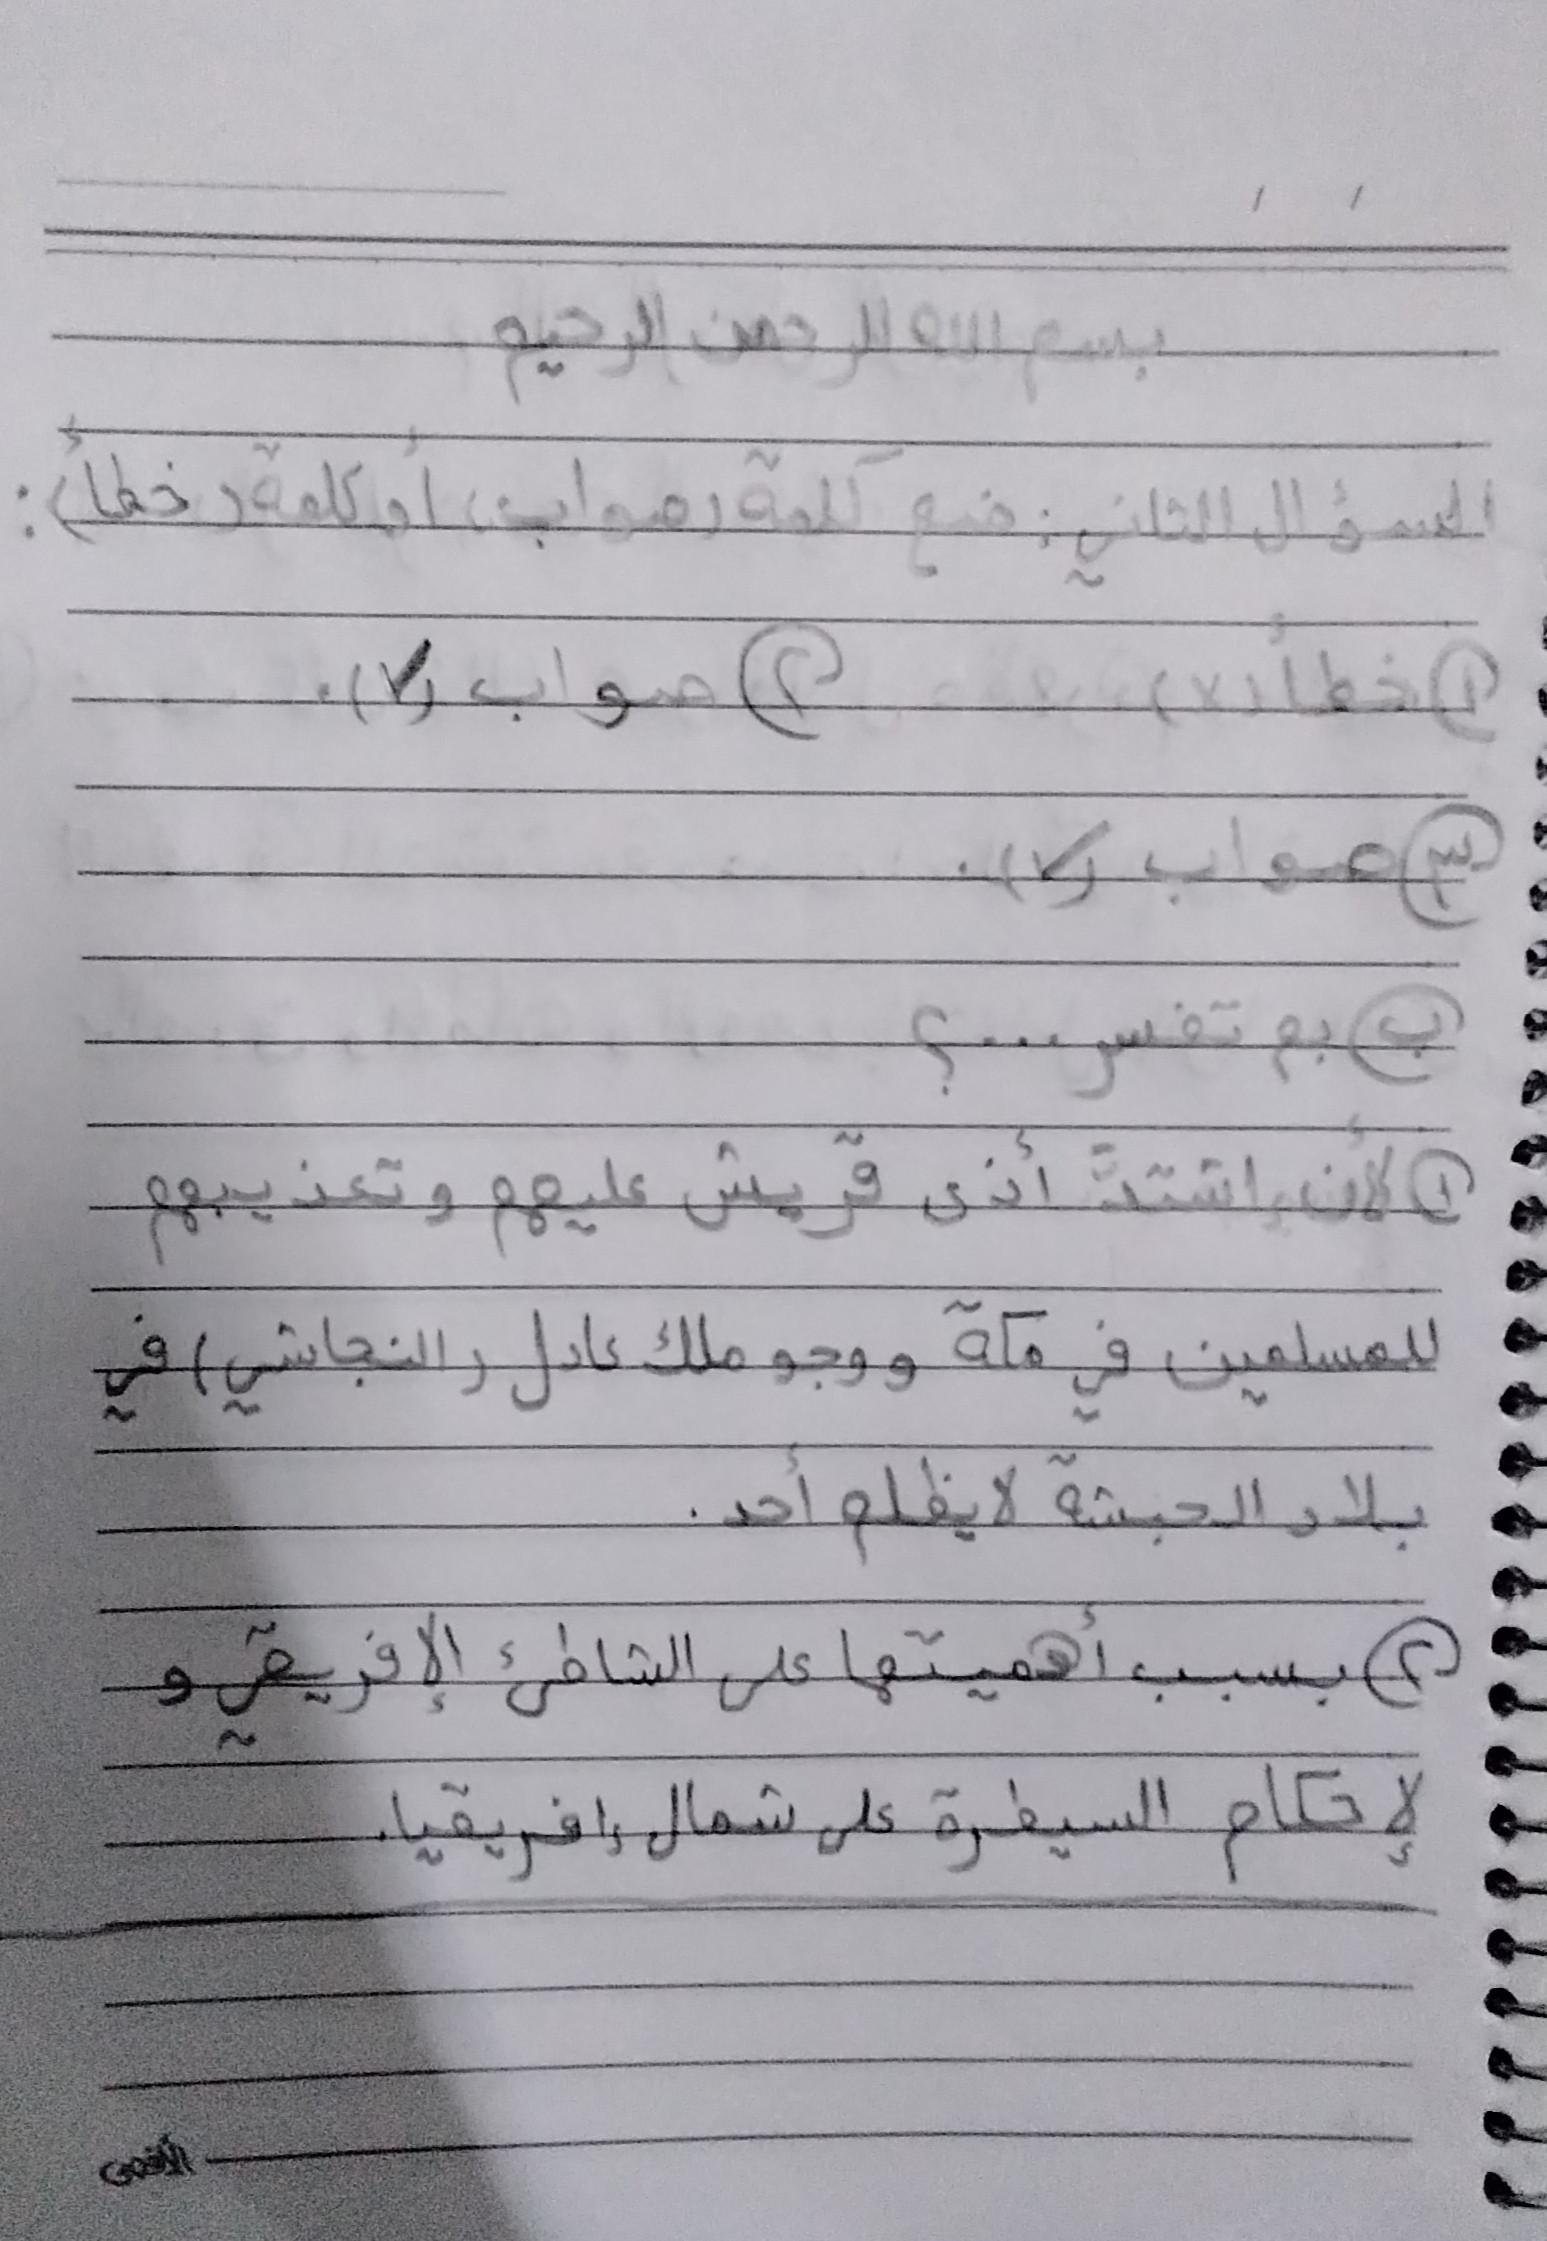 بسم الله الرحمن الرحيم
السؤال الثاني: ضع كلمة (صواب) أو كلمة (خطأ):
① خطأ (×). ② صواب (✓).
③ صواب (✓).
ب بم تفسر...؟
① لأن إشتدَّ أذى قريش عليهم وتعذيبهم
للمسلمين في مكة ووجو ملك عادل (النجاشي) في
بلاد الحبشة لا يظلم أحد.
② بسبب أهميتها على الشاطئ الإفريقي و
لإحكام السيطرة على شمال إفريقيا.
الأقصى